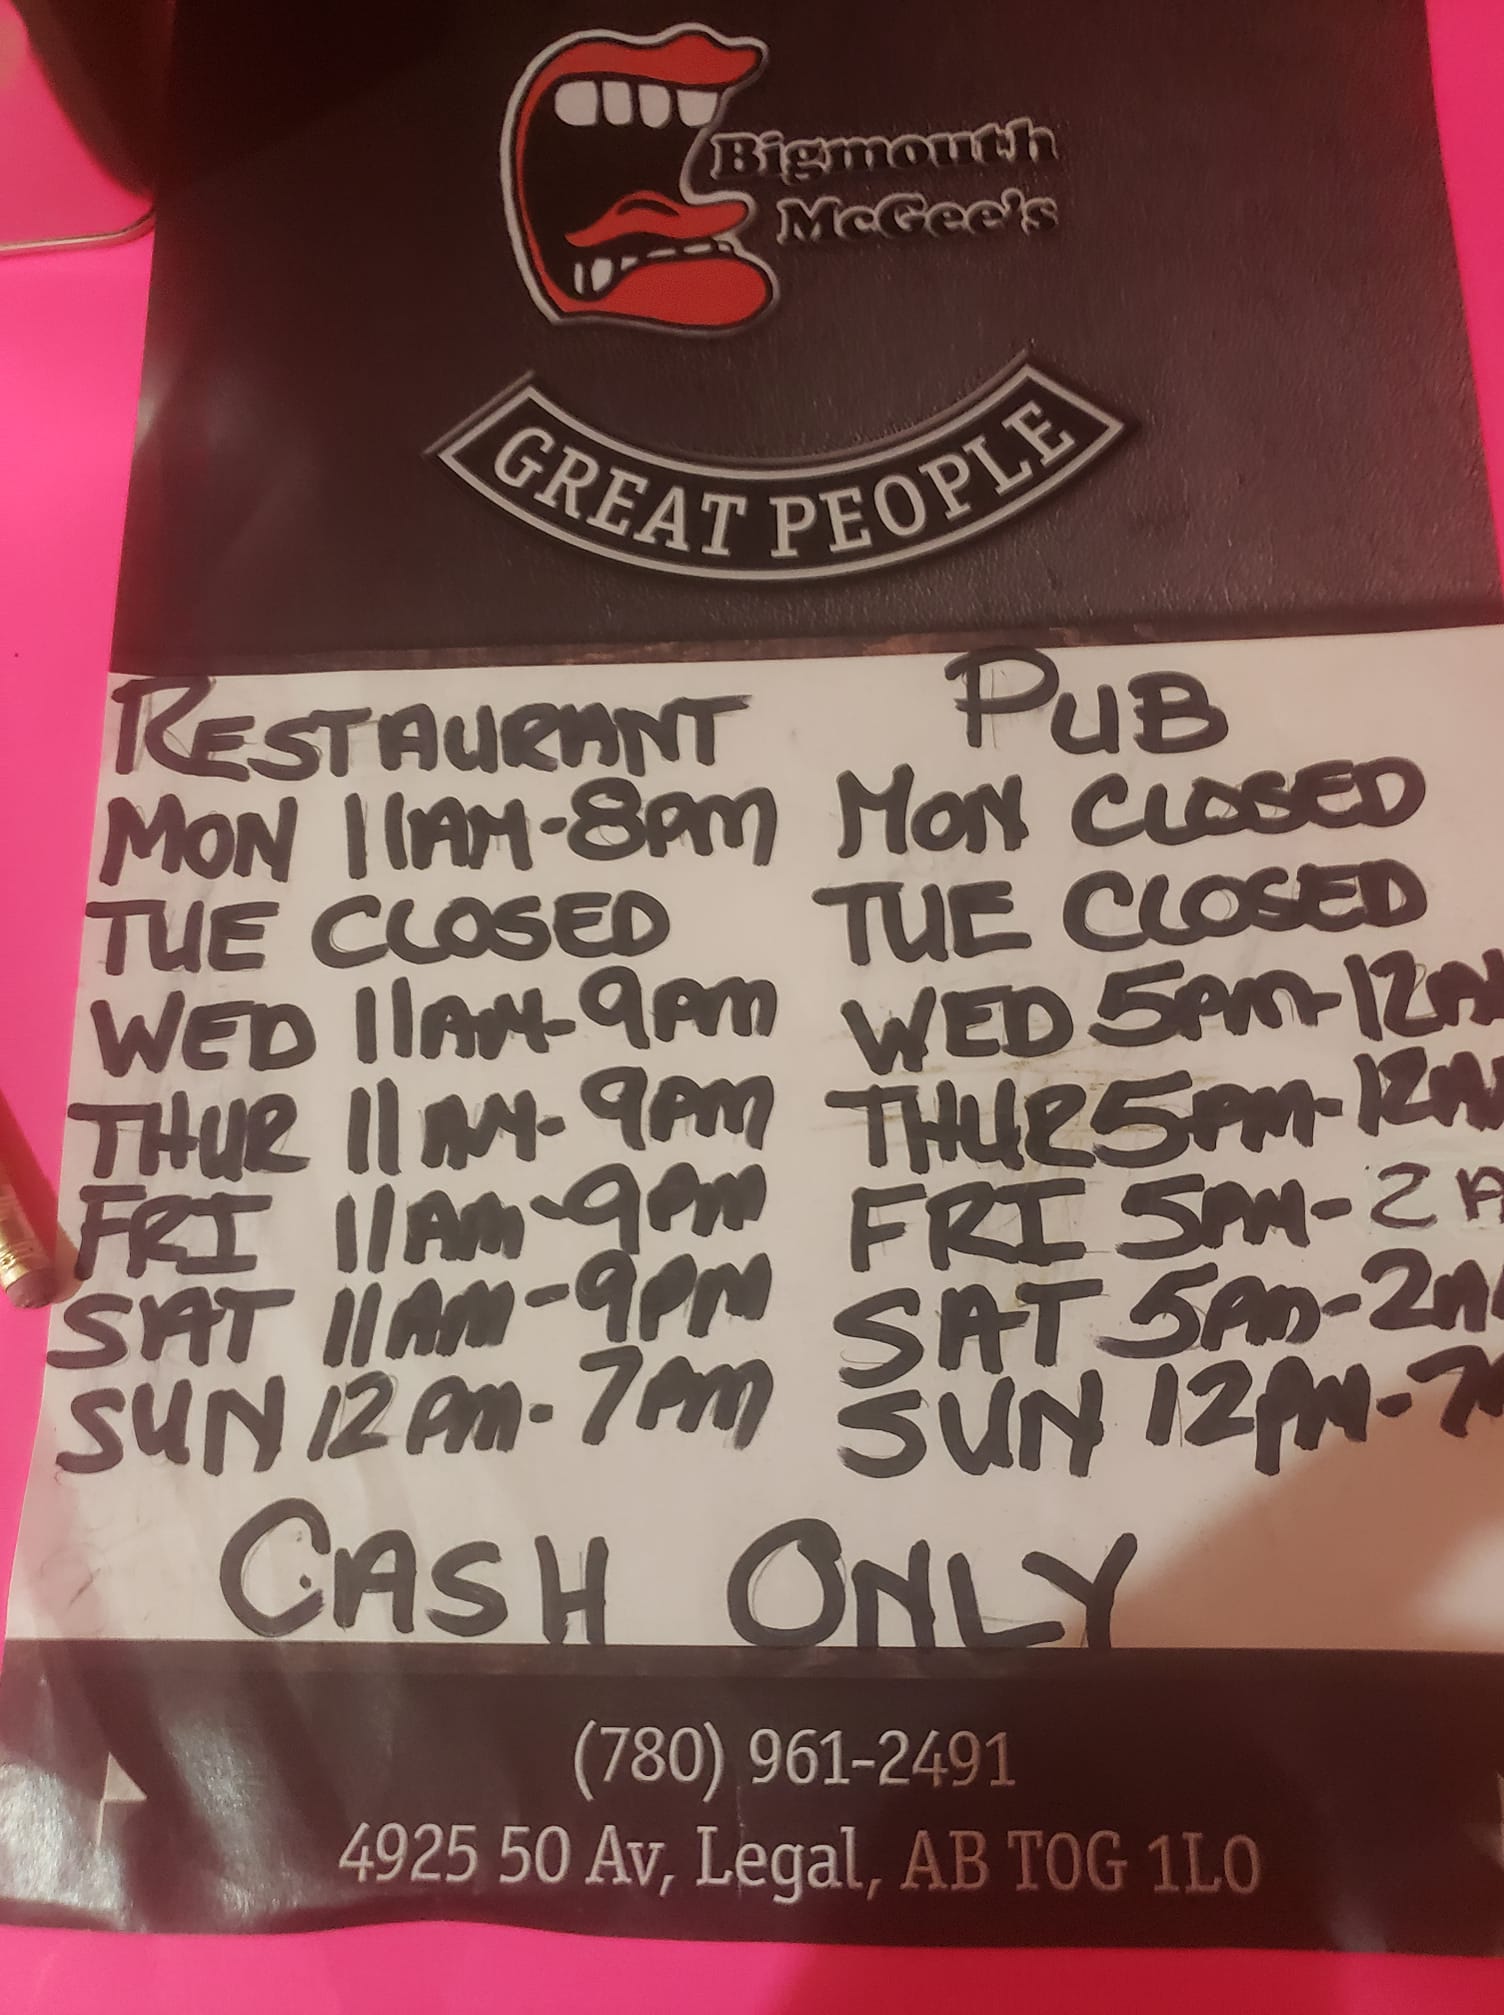 Bigmouth
McGee's
GREAT PEOPLE
RESTAURANT PUB
MON 11AM-8PM MON CLOSED
TUE CLOSED TUE CLOSED
WED 11AM-9PM WED 5PM-12A
THUR 11AM-9PM THUR 5PM-12A
FRI 11AM-9PM FRI 5PM-2A
SAT 11AM-9PM SAT 5PM-2A
SUN 12PM-7PM SUN 12PM-7
CASH ONLY
(780) 961-2491
4925 50 Av, Legal, AB T0G 1L0